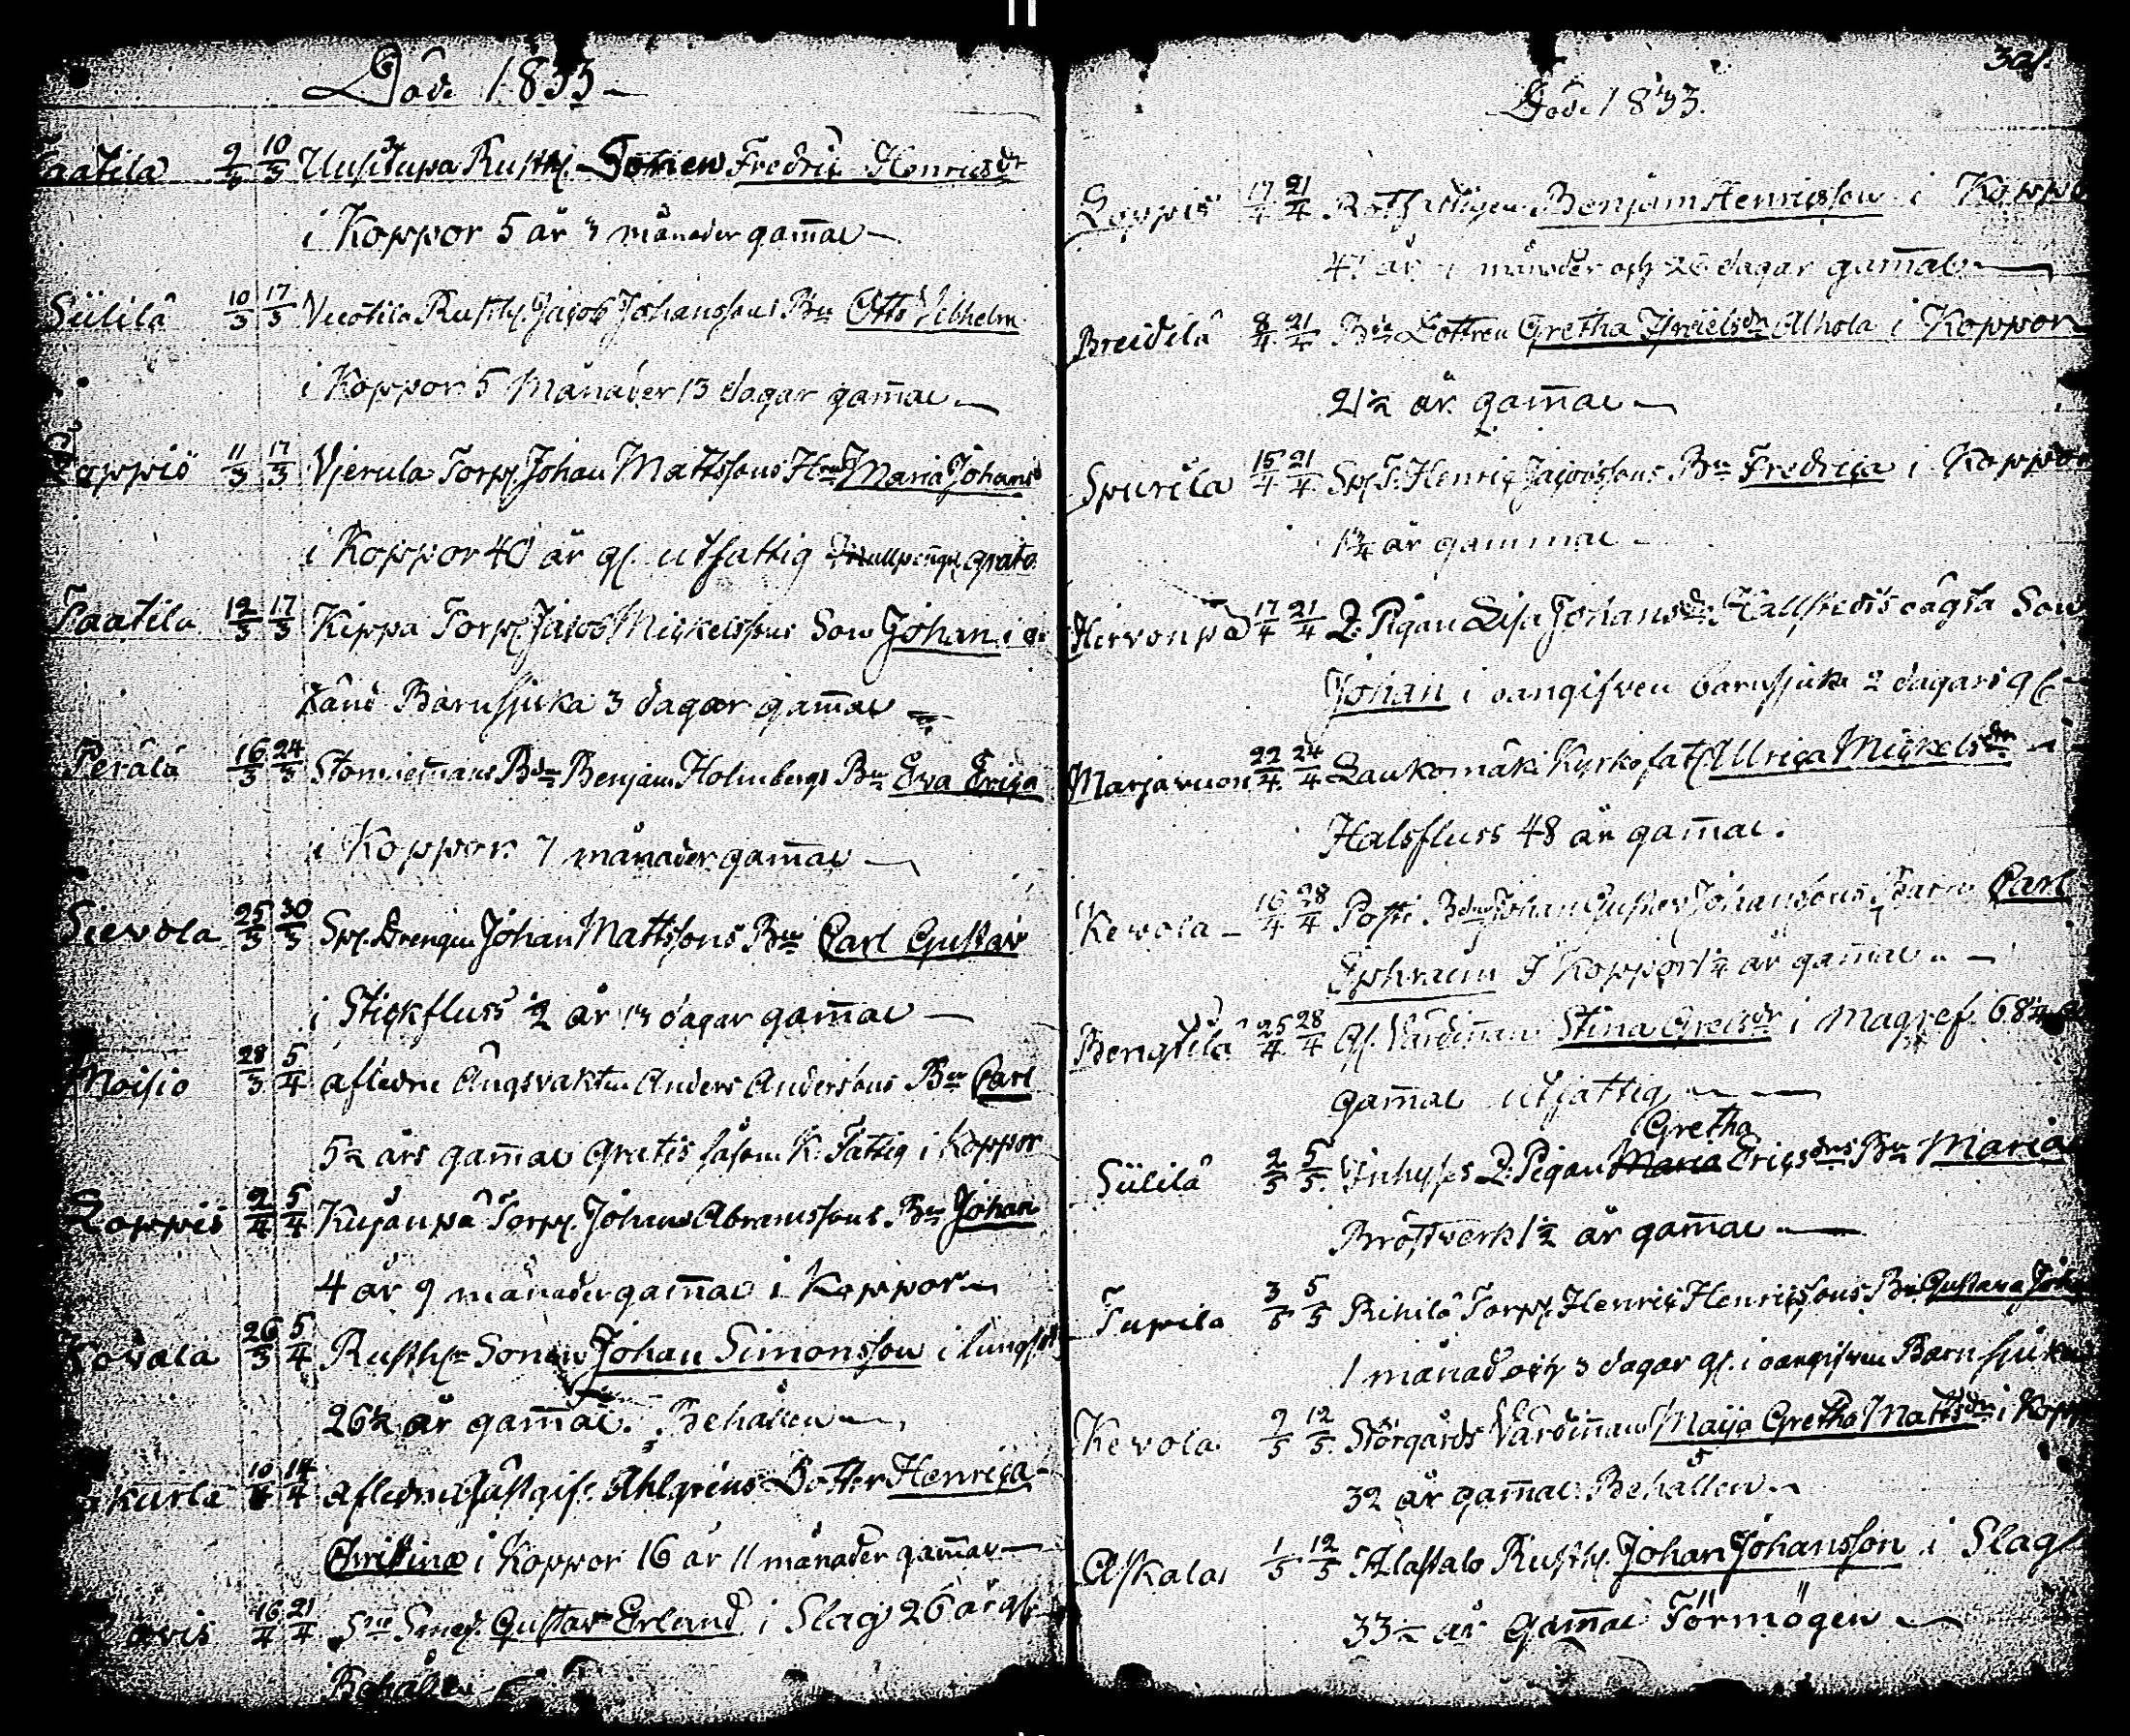 Döde 1833
9/3 10/3 Uusitupa Rusth. Sonen Fredric Henricsdr
i Koppor 5 år månader gamal
Siililä 10/3 17/3 Rusth. Jacob Johanssons Bn Otto Vilhelm
i Koppor 5 Månader 13 dagar gamal
Loppis 11/3 17/3 Vjerula Torp. Johan Mattssons Hu Maria Johansd
i Koppor 40 år gl. utfattig gratis
Taatila 12/3 17/3 Kippa Torp. Jacob Mickelssons Son Johan i o
känd Barnsjuka 3 dagar gamal
Perälä 16/3 24/3 Bdn Benjam. Holmbergs Bn Eva Erica
i Koppor 7 månader gamal
Sievola 25/3 30/3 Sp. Drengen Johan Mattssons Bn Carl Gustav
i Stickfluss ½ år 13 dagar gamal
Moisio 28/3 5/4 afledne Ängsvakten Anders Anderssons Bn Carl
5½ års gamal Gratis såsom K. Fattig i Koppor
Loppis 2/4 5/4 Kujanpä Torp. Johan Abramssons Bn Johan
4 år 9 månader gamal i Koppor
26/3 5/4 Rusth. Sonen Johan Simonsson i lungsot
26½ år gamal. Behållen
10/4 14/4 afledne Gästgif. Ahlgréns Dotter Henrica
Christina i Koppor 16 år 11 månader gamal
16/4 21/4 Sn Smed. Gustav Erland i Slag 26 år gl
Behållen
321.
Döde 1833.
Loppis 17/4 21/4 Rotfattigen Benjam Henricsson i Koppor
47 år månader och 26 dagar gamal
Breidilä 8/4 21/4 Bdn Dottren Gretha Israelsdr Alhola i Koppor
21½ år gamal
Spurila 15/4 21/4 Sp. T. Henric Jacobssons Bn Fredrica i Koppor
1¾ år gammal
Hirvonpä 17/4 21/4 Q. Pigan Lisa Johansdr Hallstedts oägta Son
Johan i oangifven barnsjuka 2 dagars gl
Marjavuori 22/4 24/4 Laukomäki Kyrkofat. Ulrica Mickelsdr
Halsfluss 48 år gamal.
Kevola 16/4 28/4 Posti Bdn Johan Gustav Johanssons Barn Carl
Ephraim i Koppor 1¼ år gamal
Bengtilä 25/4 28/4 Gl. Värdinan Stina Greisdr i Magref. 68¼ å
gamal utfattig
Gretha
Siililä 2/5 5/5 Inhyses Q. Pigan Maria Ericsdrs Bn Maria
Bröstverk 1½ år gamal
Tupila 3/5 5/5 Rihilä Torp. Henric Henricssons Bn Gustava Joh
1 månad och 3 dagar gl. i oangifven Barnsjuka
Kevola 9/5 12/5 Störgårds Värdinan Maija Gretha Mattsdr i Kopp
32 år gamal Behållen
Askala 1/5 12/5 Alastalo Rusth. Johan Johansson i Slag
33½ år gamal Förmögen